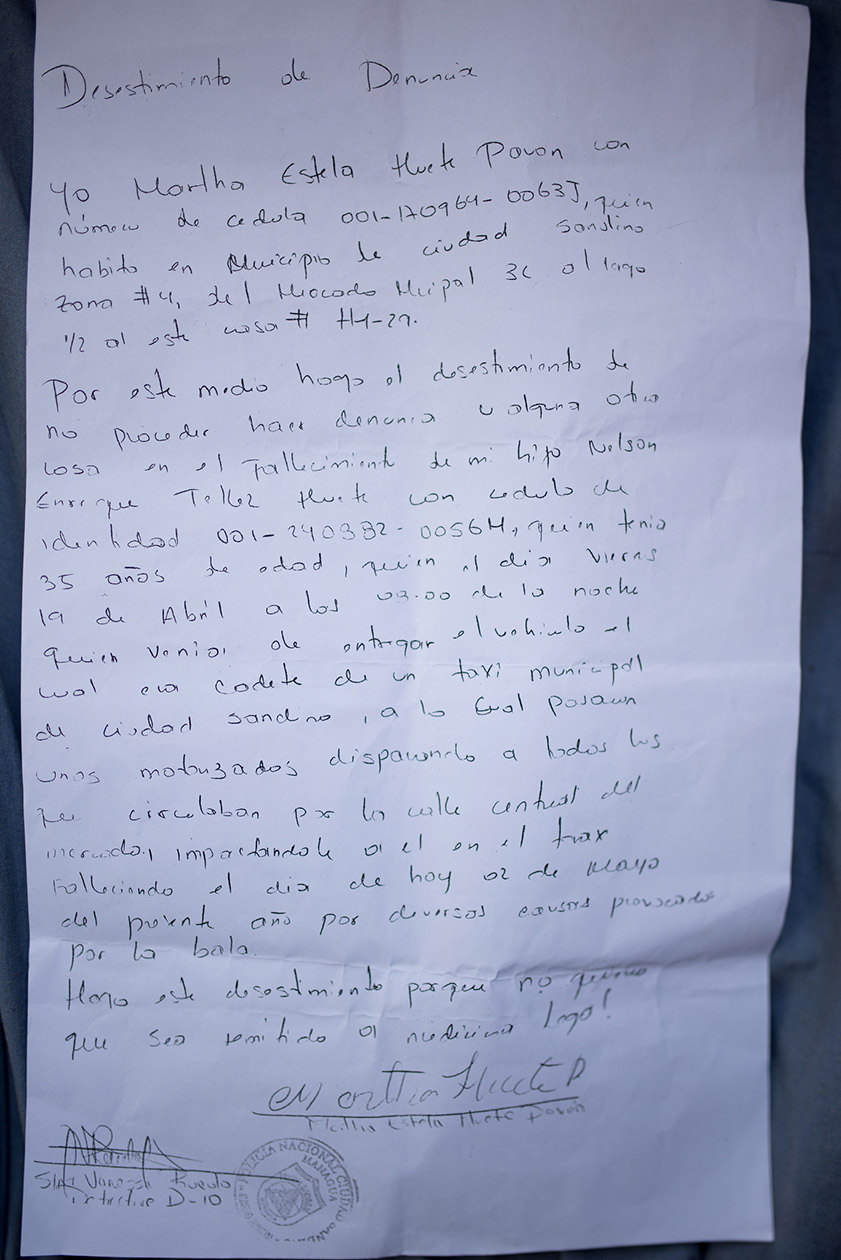 Desestimiento de Denuncia
Yo Martha Estela Huete Pavon con
número de cedula 001-170964-0063J, quien
habito en Municipio de ciudad Sandino
zona #4, del Mercado Mcipal 3c al lago
1/2 al este casa # H1-29.
Por este medio hago el desestimiento de
no proceder hacer denuncia u alguna otra
cosa en el Fallecimiento de mi hijo Nelson
Enrique Tellez Huete con cedula de
identidad 001-240382-0056H, quien tenia
35 años de edad, quien el dia Viernes
19 de Abril a las de la noche
quien venia de entregar el vehiculo el
cual era cadete de un taxi municipal
de ciudad sandino, a lo cual pasaun
unos motorizados disparando a todos los
que circulaban por la calle central del
mercado, impactandole a el en el trax
Falleciendo el dia de hoy 02 de Mayo
del presente año por diversas causas provocadas
por la bala.
Hago este desestimiento porque no quiero
que sea remitido a medicina legal
Martha Huete P
Martha Estela Huete Pavón
Vanessa
Detective D-10
POLICIA NACIONAL CIUDAD SANDINO
MANAGUA